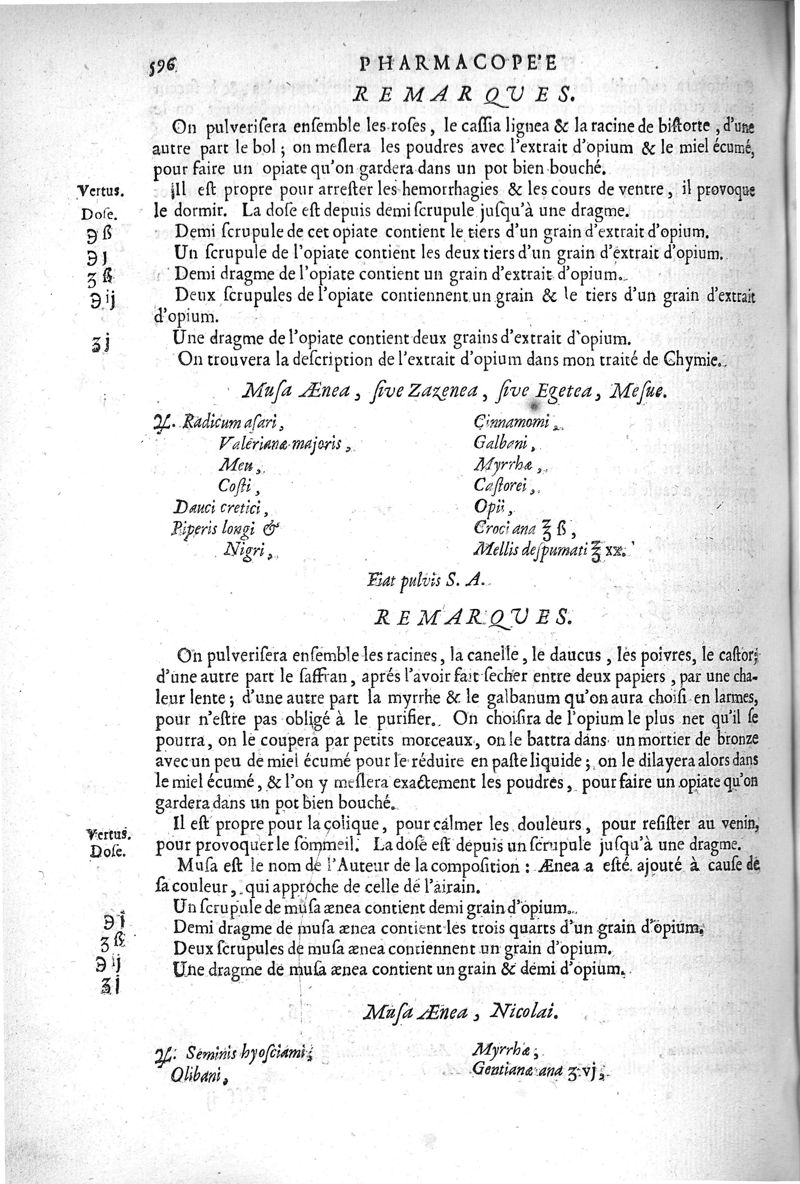 596 PHARMACOPE'E
REMARQVES.
On pulveriſera enſemble les roſes, le caſſia lignea & la racine de biſtorte, d'une
autre part le bol; on meſlera les poudres avec l'extrait d'opium & le miel écumé,
pour faire un opiate qu'on gardera dans un pot bien bouché.
Vertus. Il eſt propre pour arreſter les hemorrhagies & les cours de ventre, il provoque
Doſe. le dormir. La doſe eſt depuis demi ſcrupule juſqu'à une dragme.
℈ ß Demi ſcrupule de cet opiate contient le tiers d'un grain d'extrait d'opium.
℈ j Un ſcrupule de l'opiate contient les deux tiers d'un grain d'extrait d'opium.
ʒ ß Demi dragme de l'opiate contient un grain d'extrait d'opium.
℈ ij Deux ſcrupules de l'opiate contiennent un grain & le tiers d'un grain d'extrait
d'opium.
ʒj Une dragme de l'opiate contient deux grains d'extrait d'opium.
On trouvera la deſcription de l'extrait d'opium dans mon traité de Chymie.
Muſa Ænea, ſive Zazenea, ſive Egetea, Meſue.
♃. Radicum aſari,
Valerianæ majoris,
Meu,
Coſti,
Dauci cretici,
Piperis longi &
Nigri,
Cinnamomi,
Galbani,
Myrrhæ,
Caſtorei,
Opii,
Croci ana ℥ ß,
Mellis deſpumati ℥ xx.
Fiat pulvis S. A.
REMARQVES.
On pulveriſera enſemble les racines, la canelle, le daucus, les poivres, le caſtor;
d'une autre part le ſaffran, aprés l'avoir fait ſecher entre deux papiers, par une cha-
leur lente; d'une autre part la myrrhe & le galbanum qu'on aura choiſi en larmes,
pour n'eſtre pas obligé à le purifier. On choiſira de l'opium le plus net qu'il ſe
pourra, on le coupera par petits morceaux, on le battra dans un mortier de bronze
avec un peu de miel écumé pour le réduire en paſte liquide; on le dilayera alors dans
le miel écumé, & l'on y meſlera exactement les poudres, pour faire un opiate qu'on
gardera dans un pot bien bouché.
Vertus. Il eſt propre pour la colique, pour calmer les douleurs, pour reſiſter au venin,
Doſe. pour provoquer le ſommeil. La doſe eſt depuis un ſcrupule juſqu'à une dragme.
Muſa eſt le nom de l'Auteur de la compoſition: Ænea a eſté ajouté à cauſe de
ſa couleur, qui approche de celle de l'airain.
℈ j Un ſcrupule de muſa ænea contient demi grain d'opium.
ʒ ß Demi dragme de muſa ænea contient les trois quarts d'un grain d'opium.
℈ ij Deux ſcrupules de muſa ænea contiennent un grain d'opium.
ʒj Une dragme de muſa ænea contient un grain & demi d'opium.
Muſa Ænea, Nicolai.
♃. Seminis hyoſciami,
Olibani,
Myrrhæ,
Gentianæ ana ʒ vj,